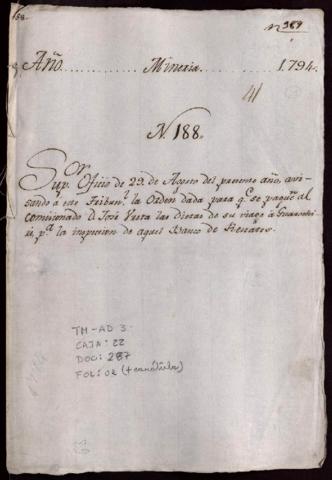 nº 369
Año Mineria 1794.
41
N. 188.
Sor
Sup. Oficio de 29. de Agosto del presente año, avi-
sando á este Tribunl. la Orden dada para q.e se pague al
comisionado D. José Vesta las Dietas de su viage á
pa. la inspeccion de aquel Banco de Rescates.
TM-AD 3
CAJA: 22
DOC: 287
FOL: 02 (+ carátula)